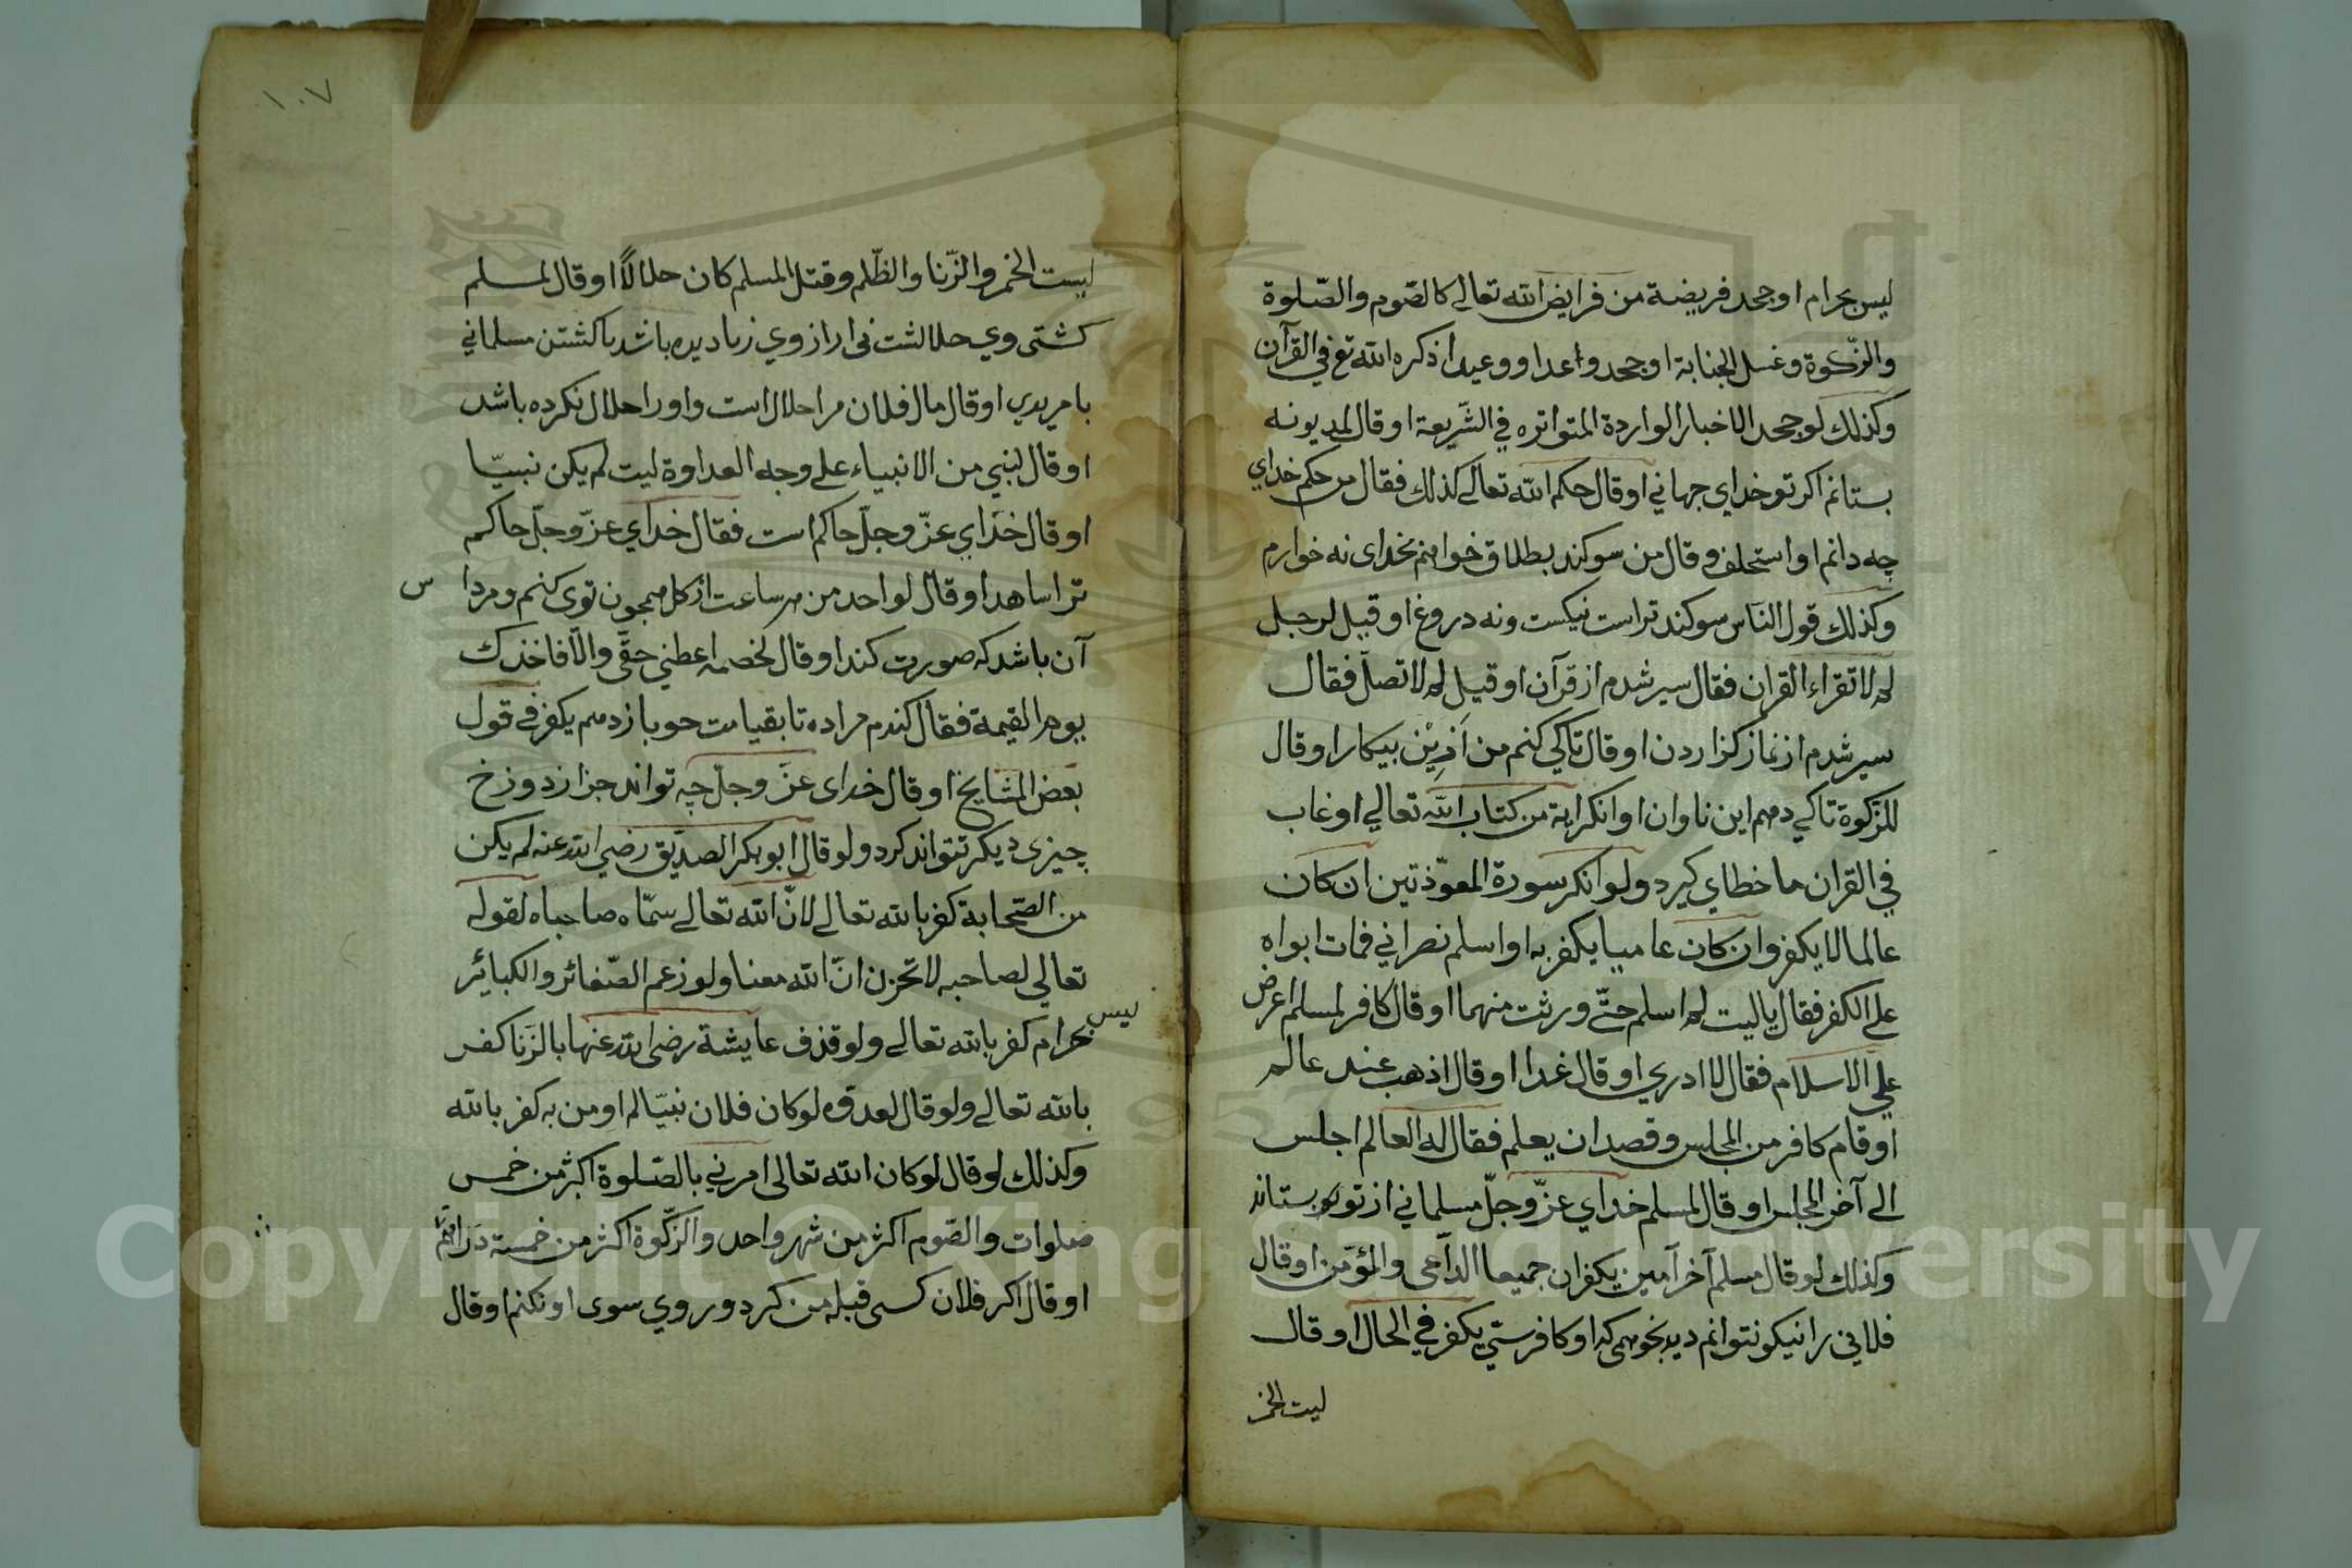 ليس بحرام او جحد فريضة من فرايض الله تعالى كالصّوم والصّلوة
والزّكوة وغسل الجنابة او جحد واعدا ووعيدا ذكره الله تع في القرآن
وكذلك لو جحد الاخبار الواردة المتواتره في الشّريعة او قال لمديونه
بستانم اكر تو خداي جهاني او قال حكم الله تعالى كذلك فقال من حكم خداي
چه دانم او استحلف وقال من سوكند بطلاق خواهم بخداى نه خوارم
وكذلك قول النّاس سوكند تراست نيكست ونه دروغ او قيل لرجل
له لا تقراء القران فقال سير شدم از قرآن او قيل له لا تصلّ فقال
سير شدم از نماز كزاردن او قال تاكي كنم من اَزِيْن بيكار او قال
للزّكوة تاكي دهم اين تاوان او انكر اية من كتاب الله تعالي او غاب
في القران ما خطاي كيرد ولو انكر سورة المعوّذتين ان كان
عالما لا يكفر وان كان عاميا يكفر به او اسلم نصراني فمات ابواه
على الكفر فقال يا ليت له اسلم حتّى ورثت منهما او قال كافر لمسلم اعرض
علي الاسلام فقال لا ادري او قال غدا او قال اذهب عند عالم
او قام كافر من المجلس وقصد ان يعلم فقال له العالم اجلس
الى آخر المجلس او قال لمسلم خداي عزّ وجلّ مسلماني از تو بستاند
وكذلك لو قال مسلم آخر آمين يكفران جميعا الدّاعى والمؤمّن او قال
فلاني را نيكو نتوانم ديد يكفر في الحال او قال
ليت الخمر
١٠٧
ليست الخمر والزّنا والظّلم وقتل المسلم كان حلالاً او قال لمسلم
باشد با كشتن مسلماني
او قال مال فلان مرا حلال است واورا حلال نكرده باشد
او قال لنبي من الانبياء على وجه العداوة ليت لم يكن نبيّا
او قال خداي عزّ وجلّ حاكم است فقال خداي عزّ وجلّ حاكم
او قال لواحد من هر ساعت از كل همچون توى كنم ومردا
س
آن باشد كه صورت كند او قال لخصمه اعطني حقّي والّا فاخذك
يوم القيمة فقال كندم مراده تا بقيامت جو بازدهم يكفر في قول
بعض المشايخ او قال خداى عزّ وجلّ چه تواند جز از دوزخ
چيزى ديكر نتواند كرد ولو قال ابو بكر الصدّيق رضي الله عنه لم يكن
من الصّحابة كفر بالله تعالى لانّ الله تعالى سمّاه صاحباه لقوله
تعالي لصاحبه لا تحزن انّ الله معنا ولو زعم الصّغائر والكبائر
ليس
بحرام كفر بالله تعالى ولو قذف عايشة رضى الله عنها بالزّنا كفر
بالله تعالى ولو قال لعدوّه لو كان فلان نبيّا لم اومن به كفر بالله
وكذلك لو قال لو كان الله تعالى امرني بالصّلوة اكثر من خمس
صلوات والصّوم اكثر من شهر واحد والزّكوة اكثر من خمسة دراهم
او قال اكر فلان كسى قبله من كردد روي سوى او نكنم او قال